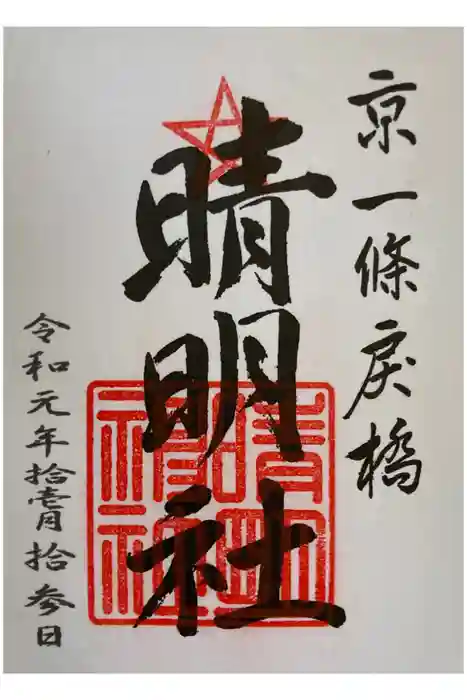 京一條戻橋
晴明社
晴明神社
令和元年拾壹月拾参日